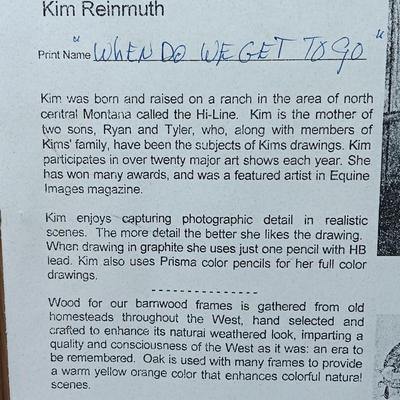 Kim Reinmuth
Print Name "WHEN DO WE GET TO GO"
Kim was born and raised on a ranch in the area of north
central Montana called the Hi-Line. Kim is the mother of
two sons, Ryan and Tyler, who, along with members of
Kims' family, have been the subjects of Kims drawings. Kim
participates in over twenty major art shows each year. She
has won many awards, and was a featured artist in Equine
Images magazine.
Kim enjoys capturing photographic detail in realistic
scenes. The more detail the better she likes the drawing.
When drawing in graphite she uses just one pencil with HB
lead. Kim also uses Prisma color pencils for her full color
drawings.
- - - - - - - - - - - - - -
Wood for our barnwood frames is gathered from old
homesteads throughout the West, hand selected and
crafted to enhance its natural weathered look, imparting a
quality and consciousness of the West as it was: an era to
be remembered. Oak is used with many frames to provide
a warm yellow orange color that enhances colorful natural
scenes.